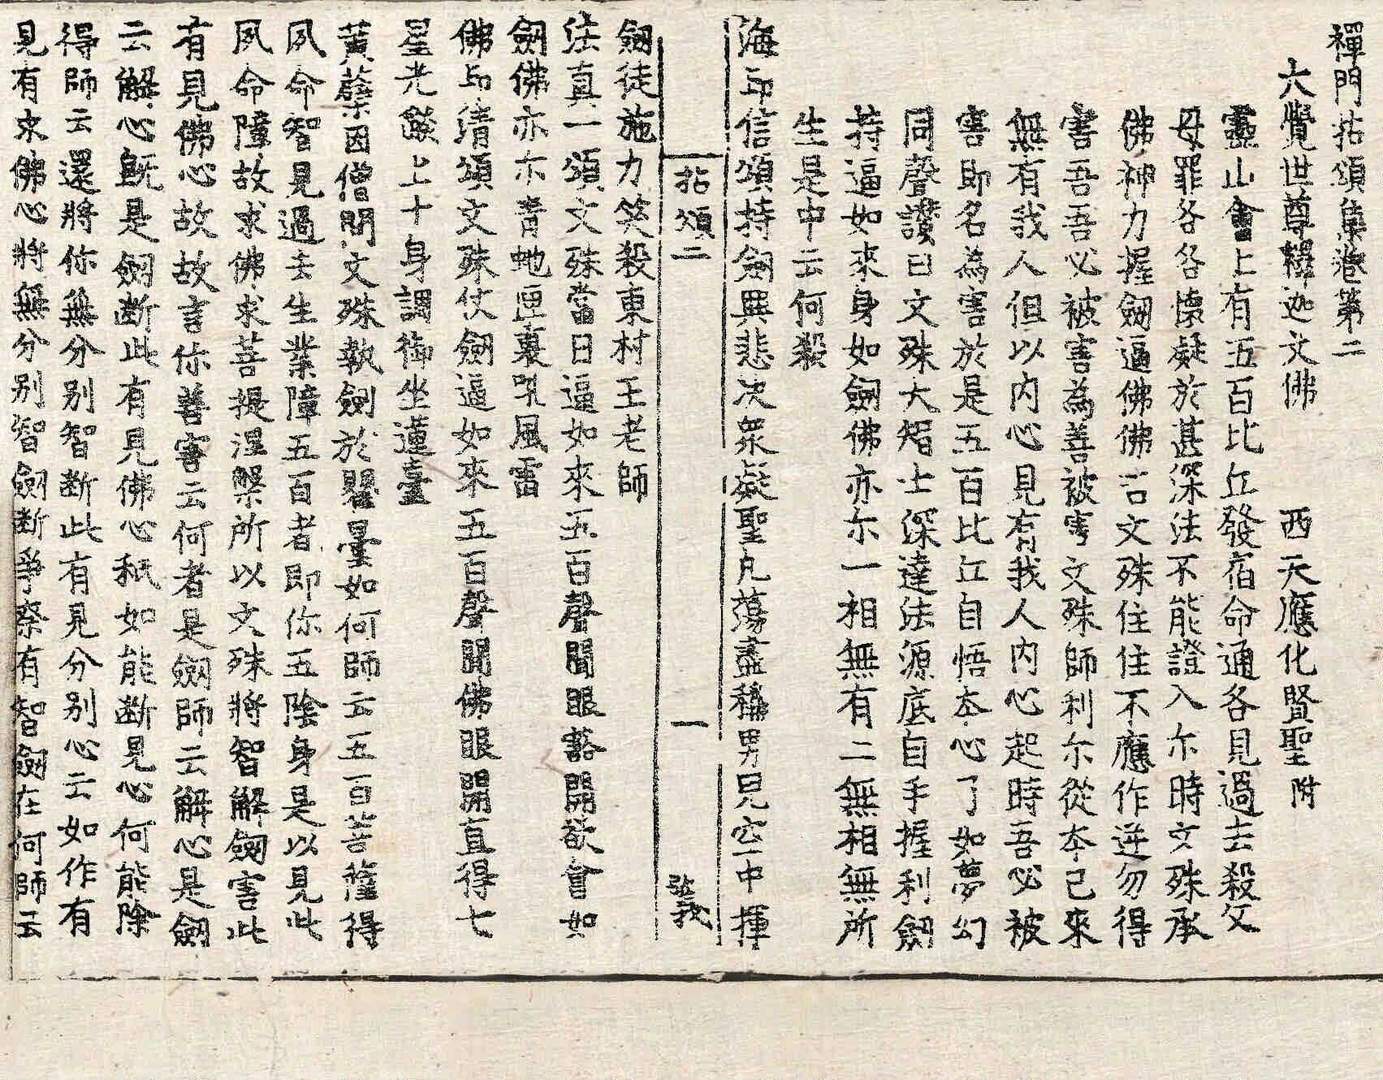 禪門拈頌集卷第二
大覺世尊釋迦文佛　西天應化賢聖附
靈山會上有五百比丘發宿命通各見過去殺父
母罪各各懷疑於甚深法不能證入尒時文殊承
佛神力握劒逼佛佛言文殊住住不應作逆勿得
害吾吾必被害為善被害文殊師利尒從本已來
無有我人但以内心見有我人内心起時吾必被
害即名為害於是五百比丘自悟本心了如夢幻
同聲讃曰文殊大智士深達法源底自手握利劒
持逼如來身如劒佛亦尒一相無有二無相無所
生是中云何殺
海印信頌持劒興悲决衆疑聖凡蕩盡稱男兒空中揮
拈頌二
一
劒徒施力笑殺東村王老師
法真一頌文殊當日逼如來五百聲聞眼豁開欲會如
劒佛亦尒青虵匣裏吼風雷
佛印淸頌文殊仗劒逼如來五百聲聞佛眼開直得七
星光燄上十身調御坐蓮臺
黄蘗因僧問文殊執劒於瞿曇如何師云五百菩薩得
夙命智見過去生業障五百者即你五陰身是以見此
夙命障故求佛求菩提涅槃所以文殊將智解劒害此
有見佛心故故言你善害云何者是劒師云解心是劒
云解心旣是劒断此有見佛心秖如能断見心何能除
得師云還將你無分别智断此有見分别心云如作有
見有求佛心將無分别智劒断爭柰有智劒在何師云